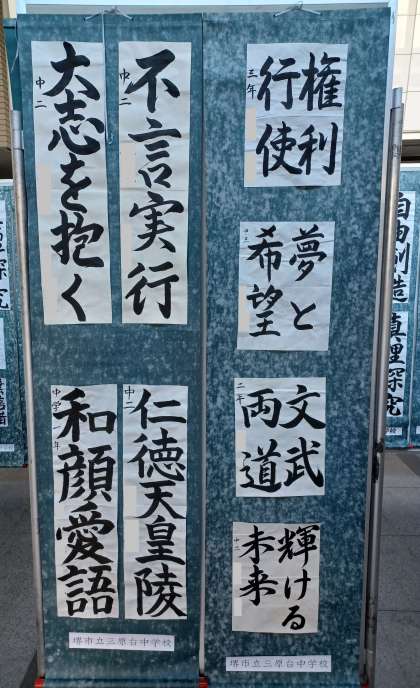 自由創造
真理探究
権利
行使
三年
夢と
希望
文武
両道
二年
輝ける
未来
中二
堺市立三原台中学校
不言実行
中二
大志を抱く
中二
仁徳天皇陵
中二
和顔愛語
堺市立三原台中学校